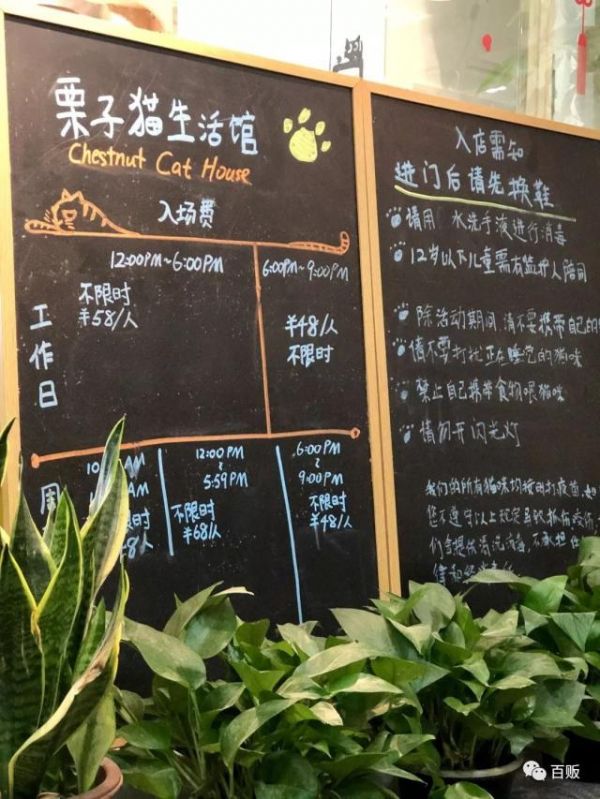 栗子猫生活馆
Chestnut Cat House
入场费
12:00PM~6:00PM
6:00PM~9:00PM
工作日
不限时
¥58/人
¥48/人
不限时
周
12:00PM
~
5:59PM
不限时
¥68/人
6:00PM
~
9:00PM
不限时
¥48/人
入店需知
进门后请先换鞋
请用 水洗手液进行消毒
12岁以下儿童需有监护人陪同
除活动期间,请不要携带自己的
请不要打扰正在睡觉的猫咪
禁止自己携带食物喂猫咪
请勿开闪光灯
我们的所有猫咪均按时打疫苗,如
您不遵守以上规定导致抓伤
们会提供清洗消毒,不承担
百贩